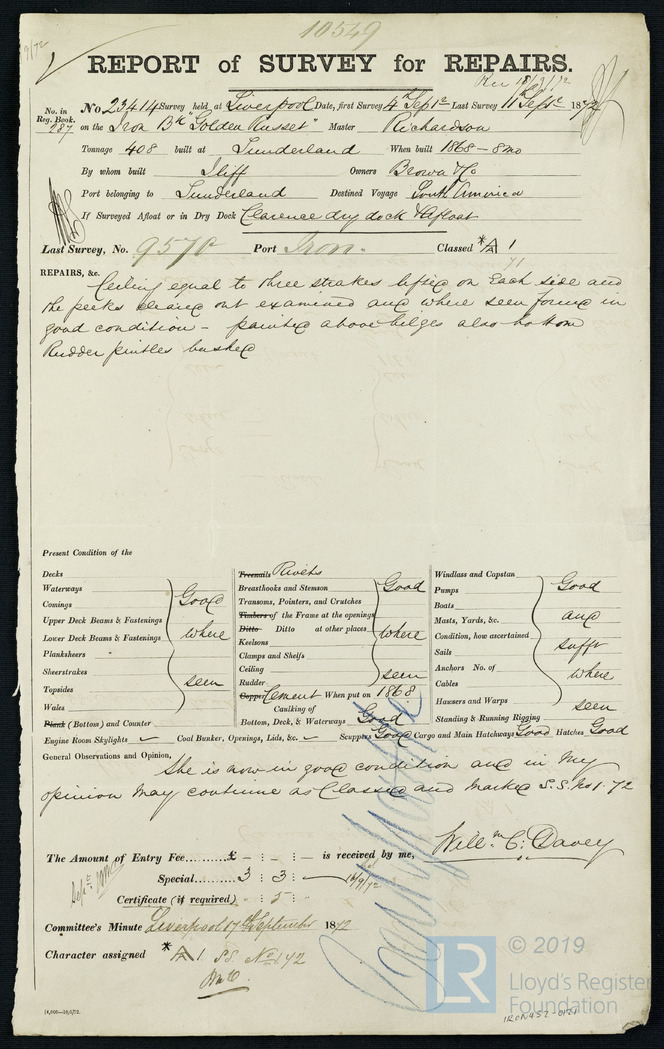 10549
9/72
REPORT of SURVEY for REPAIRS.
Rec 18/9/72
No. in Reg. Book. 287
No 23414 Survey held at Liverpool Date, first Survey 4th Septr Last Survey 11th Septr 1872
on the Iron Bk "Golden Russet" Master Richardson
Tonnage 408 built at Sunderland When built 1868 - 8mo
By whom built Iliff Owners Brown & Co
Port belonging to Sunderland Destined Voyage South America
If Surveyed Afloat or in Dry Dock Clarence dry dock & Afloat
Last Survey, No. 9570 Port Iron. Classed *A 1
71
REPAIRS, &c. Ceiling equal to three strakes lifted on Each side and
the peeks cleared out examined and where seen found in
good condition - painted above bilges also bottom
Rudder pintles bushed
Present Condition of the
Decks
Waterways
Comings
Upper Deck Beams & Fastenings
Lower Deck Beams & Fastenings
Planksheers
Sheerstrakes
Topsides
Wales
Good where seen
Plank (Bottom) and Counter
Treenails Rivets
Breasthooks and Stemson
Transoms, Pointers, and Crutches
Timbers of the Frame at the openings
Ditto Ditto at other places
Keelsons
Clamps and Shelfs
Ceiling
Rudder
Good where seen
Copper Cement When put on 1868
Caulking of
Bottom, Deck, & Waterways Good
Windlass and Capstan
Pumps
Boats
Masts, Yards, &c.
Condition, how ascertained
Sails
Anchors No. of
Cables
Hawsers and Warps
Standing & Running Rigging
Good and sufft where seen
Engine Room Skylights ✓ Coal Bunker, Openings, Lids, &c. ✓ Scuppers Good Cargo and Main Hatchways Good Hatches Good
General Observations and Opinion,
She is now in good condition and in my
opinion may continue as Classed and marked S.S. No 1-72
Willm C. Davey
The Amount of Entry Fee......... £ - : - : - is received by me,
Special......... 3 : 3 : - 16/9/72
Certificate (if required) . - : 5 : -
Committee's Minute Liverpool 17th September 1872
Character assigned *A 1. SS. No 1.72
14,000—10/6/72.
© 2019
LR
Lloyd's Register
Foundation
IRON452-0171